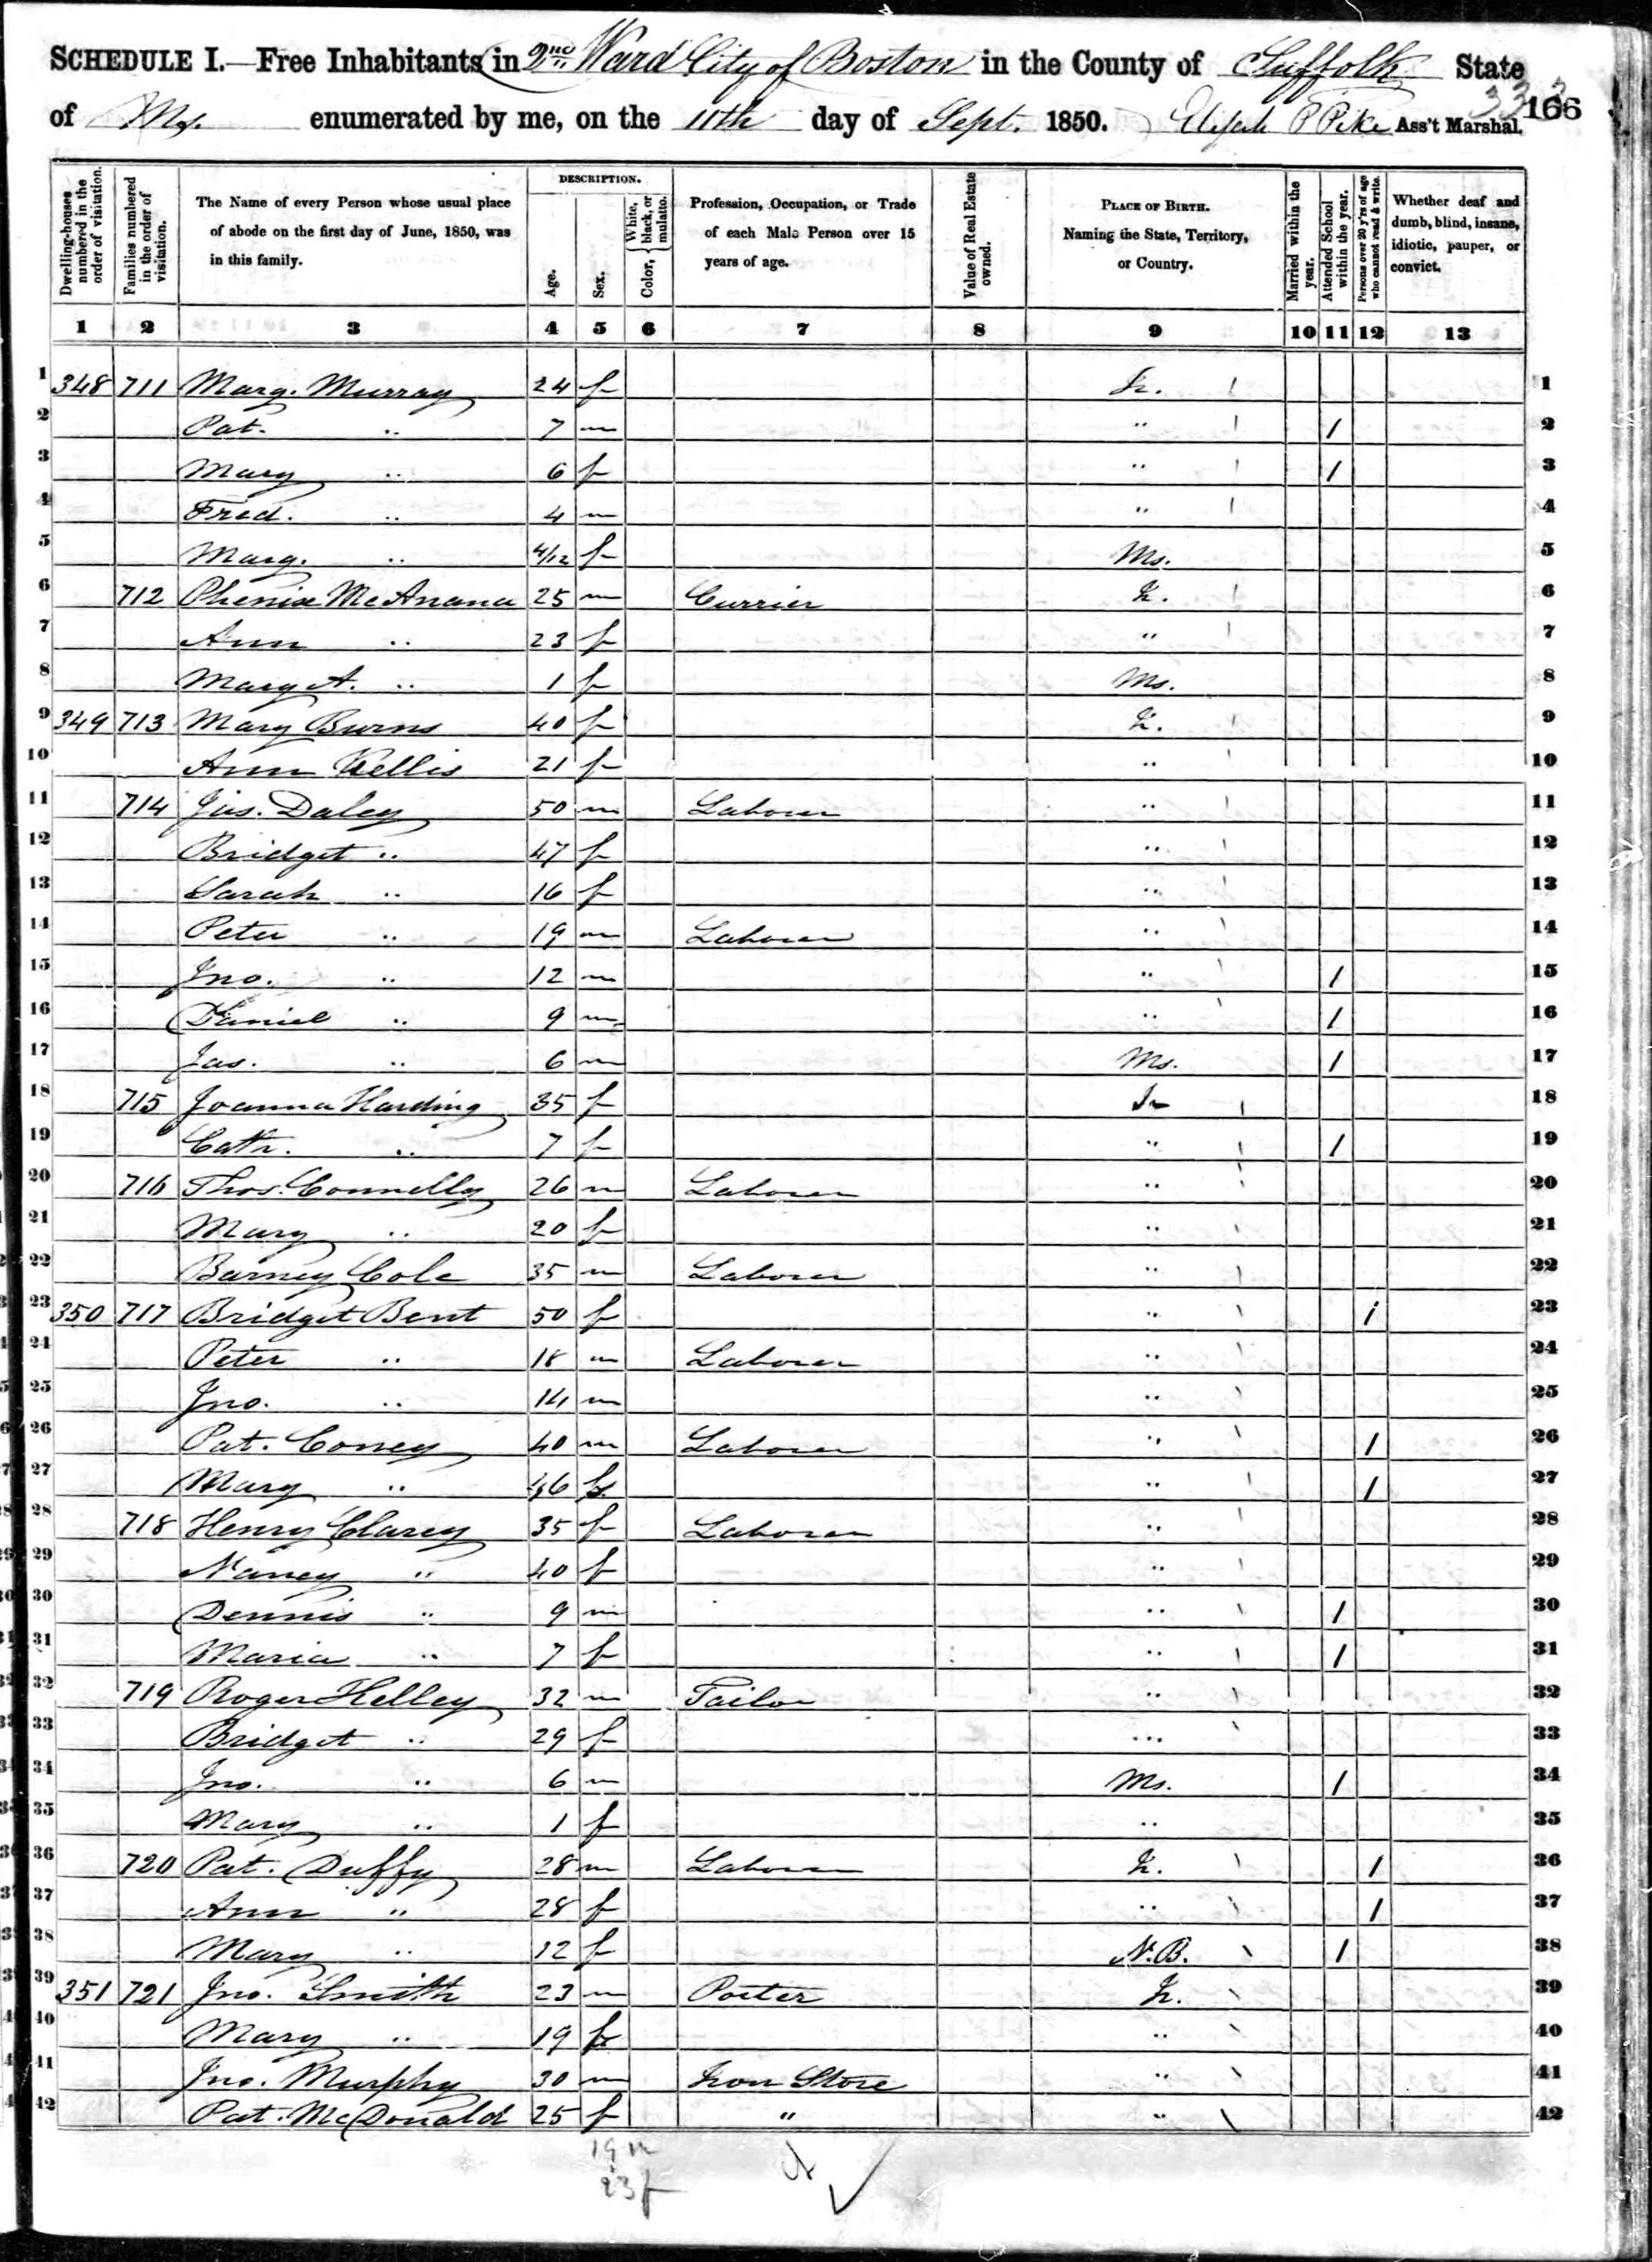 SCHEDULE I.—Free Inhabitants in 2nd Ward City of Boston in the County of Suffolk State
of Ms. enumerated by me, on the 11th day of Sept. 1850. Elijah P Pike Ass't Marshal. 166
Dwelling-houses numbered in the order of visitation.
Families numbered in the order of visitation.
The Name of every Person whose usual place of abode on the first day of June, 1850, was in this family.
DESCRIPTION.
Age.
Sex.
Color, { White, black, or mulatto.
Profession, Occupation, or Trade of each Male Person over 15 years of age.
Value of Real Estate owned.
PLACE OF BIRTH. Naming the State, Territory, or Country.
Married within the year.
Attended School within the year.
Persons over 20 y'rs of age who cannot read & write.
Whether deaf and dumb, blind, insane, idiotic, pauper, or convict.
1 2 3 4 5 6 7 8 9 10 11 12 13
1 348 711 Marg. Murray 24 f Ir. / 1
2 Pat. " 7 m " / / 2
3 Mary " 6 f " / / 3
4 Fred. " 4 m " / 4
5 Marg. " 4/12 f Ms. 5
6 712 Phenix McAnana 25 m Currier Ir. / 6
7 Ann " 23 f " / 7
8 Mary A. " 1 f Ms. 8
9 349 713 Mary Burns 40 f Ir. / 9
10 Ann Kellis 21 f " / 10
11 714 Jas. Daley 50 m Laborer " / 11
12 Bridget " 47 f " / 12
13 Sarah " 16 f " / 13
14 Peter " 19 m Laborer " / 14
15 Jno. " 12 m " / / 15
16 Daniel " 9 m " / / 16
17 Jas. " 6 m Ms. / 17
18 715 Joanna Harding 35 f Ir / 18
19 Cath. " 7 f " / / 19
20 716 Thos. Connelly 26 m Laborer " / 20
21 Mary " 20 f " / 21
22 Barney Cole 35 m Laborer " / 22
23 350 717 Bridget Bent 50 f " / / 23
24 Peter " 18 m Laborer " / 24
25 Jno. " 14 m " / 25
26 Pat. Coney 40 m Laborer " / / 26
27 Mary " 46 f " / / 27
28 718 Henry Clarey 35 f Laborer " / 28
29 Nancy " 40 f " / 29
30 Dennis " 9 m " / / 30
31 Maria " 7 f " / / 31
32 719 Roger Helley 32 m Tailor " / 32
33 Bridget " 29 f " / 33
34 Jno. " 6 m Ms. / 34
35 Mary " 1 f " 35
36 720 Pat. Duffy 28 m Laborer Ir. / / 36
37 Ann " 28 f " / / 37
38 Mary " 12 f N.B. / / 38
39 351 721 Jno. Smith 23 m Porter Ir. / 39
40 Mary " 19 f " / 40
41 Jno. Murphy 30 m Iron Store " / 41
42 Pat. McDonald 25 f " " / 42
19 m
23 f